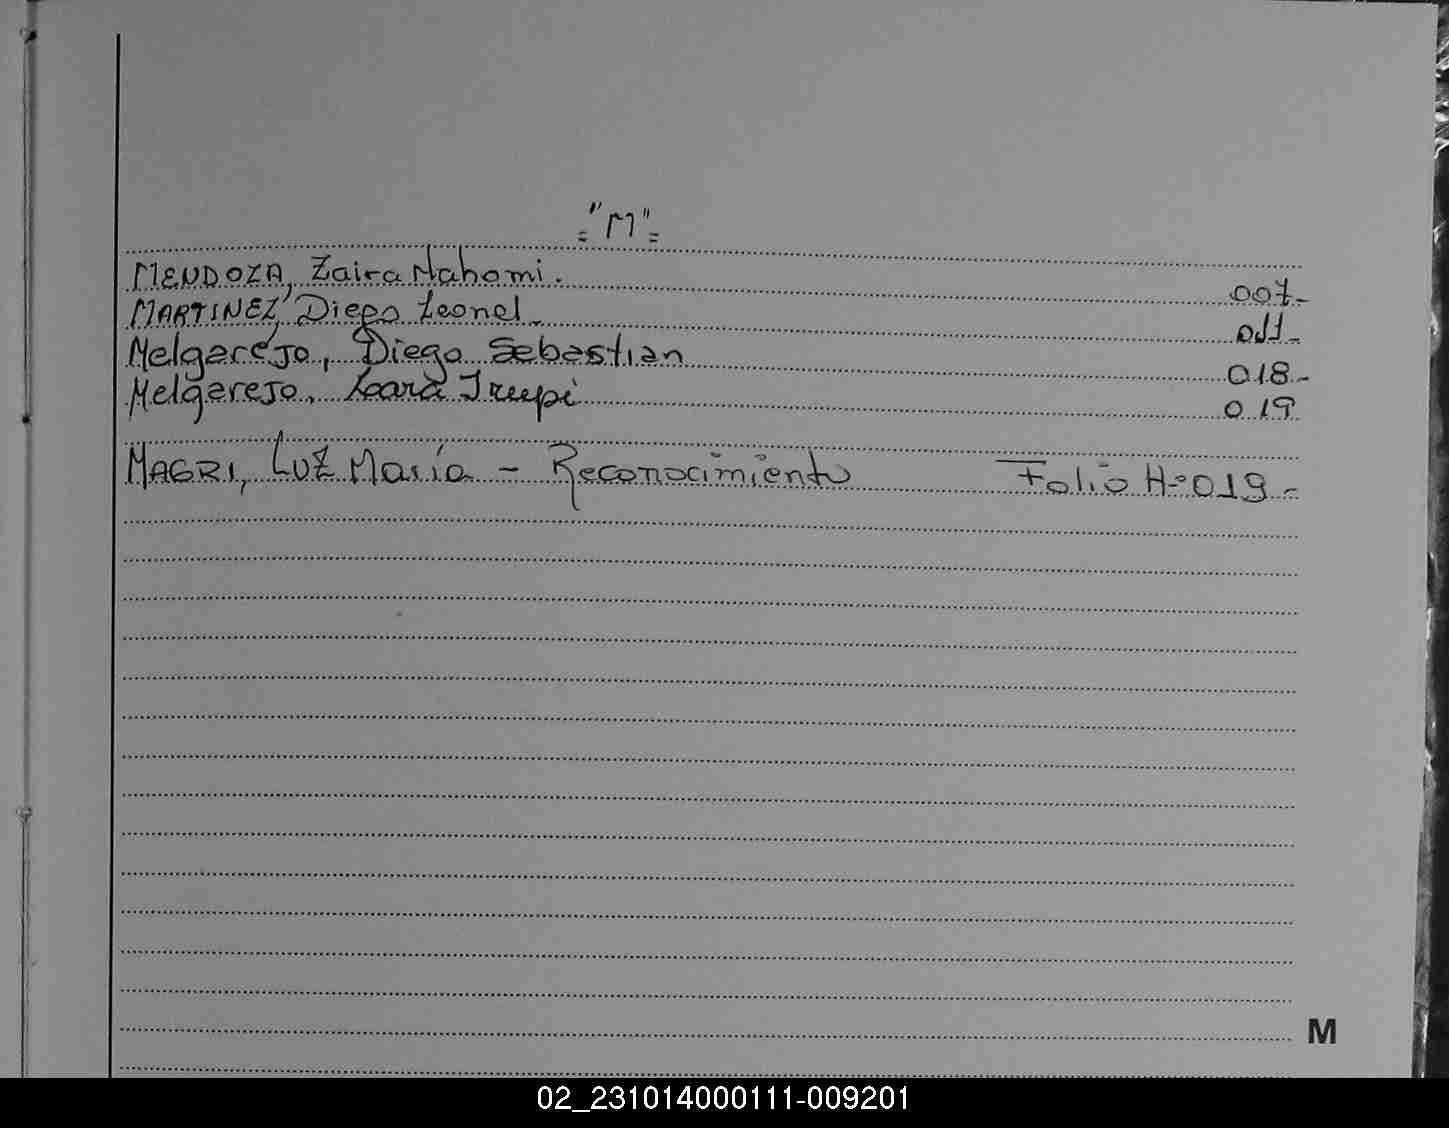 ="M"=
MENDOZA, Zaira Nahomi. 007-
MARTINEZ, Diego Leonel - 011-
Melgarejo, Diego Sebastian 018-
Melgarejo, Irupé 019
MAGRI, LUZ María - Reconocimiento Folio Nº 019-
M
02_231014000111-009201